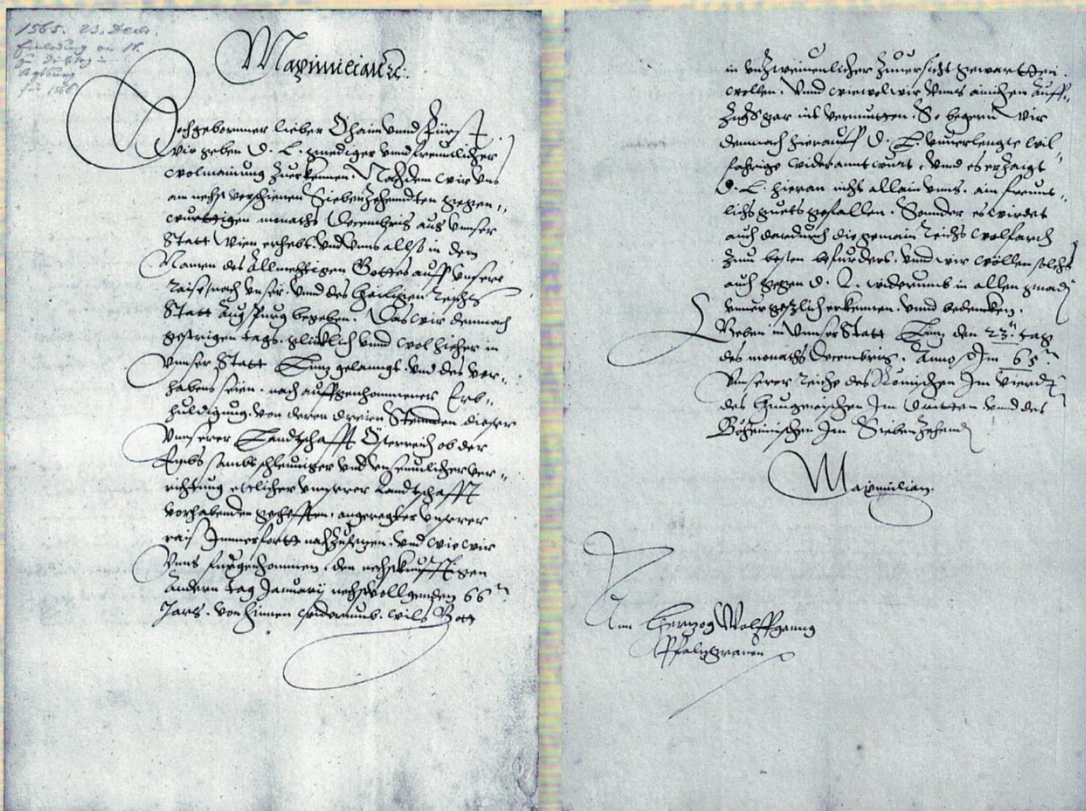 1565. 23. Dec.
Maximilian etc.
Hochgebornner lieber Ohaim vnnd Fürst,
wir geben D. L. gnediger vnnd freuntlicher
wolmainung zuerkennen. Nachdem wir vns
an nechst verschienen Siebenzehenndten gegen,,
wurttigen monaths Decembris aus vnnser
Statt Wien erhebt, vnd vnns allso in dem
Namen des Allmechtigen Gottes auff vnnsere
raise nach vnser vnnd des Heiligen Reichs
Statt Augspurg begeben. Das wir demnach
gestrigen tags glücklich vnnd wol hieher in
vnnser Statt Lintz gelanngt. vnd des vor,,
habens seien, nach auffgenhommener Erb,,
huldigung, von denen dreien Stennden dieser
vnnserer Landtschafft Österreich ob der
Enns sambt schleuniger vnd
richtung ettlicher vnnserer Landtschafft
vorhabenden geschefften, angeregter vnnserer
rais Immerfortt nachzusetzen, vnd wie wir
vnns fürgenhommen, den nechstkunfftigen
Andern tag January nechstvolgenden 66
Jars, von hinnen widerumb, wils Gott
in vnzweiuenlicher zuuersicht gewartten
wollen. Vnnd wiewol wir vnns ainichen auff,,
zugs gar nit vermuetten. So begern wir
demnach hierauff D. L. vnuerlengte wil,,
fahrige widerantwurt, vnnd es erzaigt
D. L. hieran nicht allain vnns, ain freunt,,
lichs guets gefallen. Sonnder es wirdet
auch dardurch die gemain Reichs wolfarth
zum besten befürdert. Vnnd wir wöllen solchs
auch gegen D. L. widerumb in allen gnaden
vnuergesslich erkennen, vnnd bedenken.
Geben in vnnser Statt Lintz den 23. tag
des monaths Decembris. Anno Im 65
Vnnserer Reiche des Römischen Im Vierdten
des Hungerischen Im Dritten vnnd des
Böheimischen Im Siebenzehenden
Maximilian
Ann Hertzog Wolffganng
Pfaltzgrauen